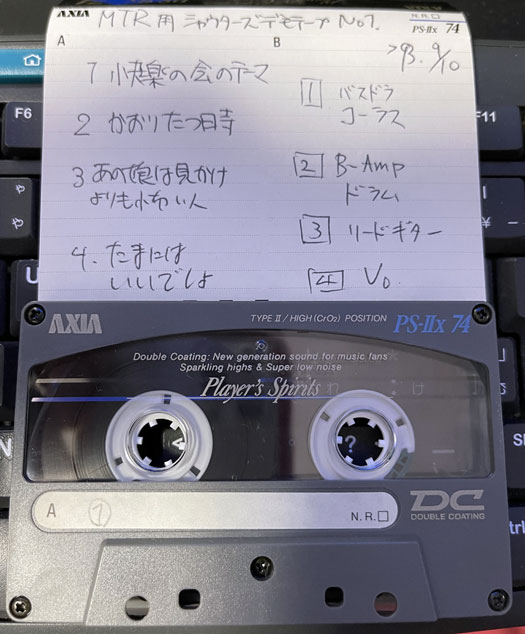 AXIA MTR用 シャウターズデモテープ No1.
N.R.□
PS-IIx 74
A
B
'93. 9/10
1 快楽の会のテーマ
2 かおりたつ時
3 あの娘は見かけ
よりも怖い人
4. たまには
いいでしょ
1 バスドラ
コーラス
2 B-Amp
ドラム
3 リードギター
4 Vo.
F6
F11
AXIA
TYPE II / HIGH (CrO2) POSITION PS-IIx 74
Double Coating: New generation sound for music fans
Sparkling highs & Super low noise
Player's Spirits
A ① N.R.□
DC
DOUBLE COATING